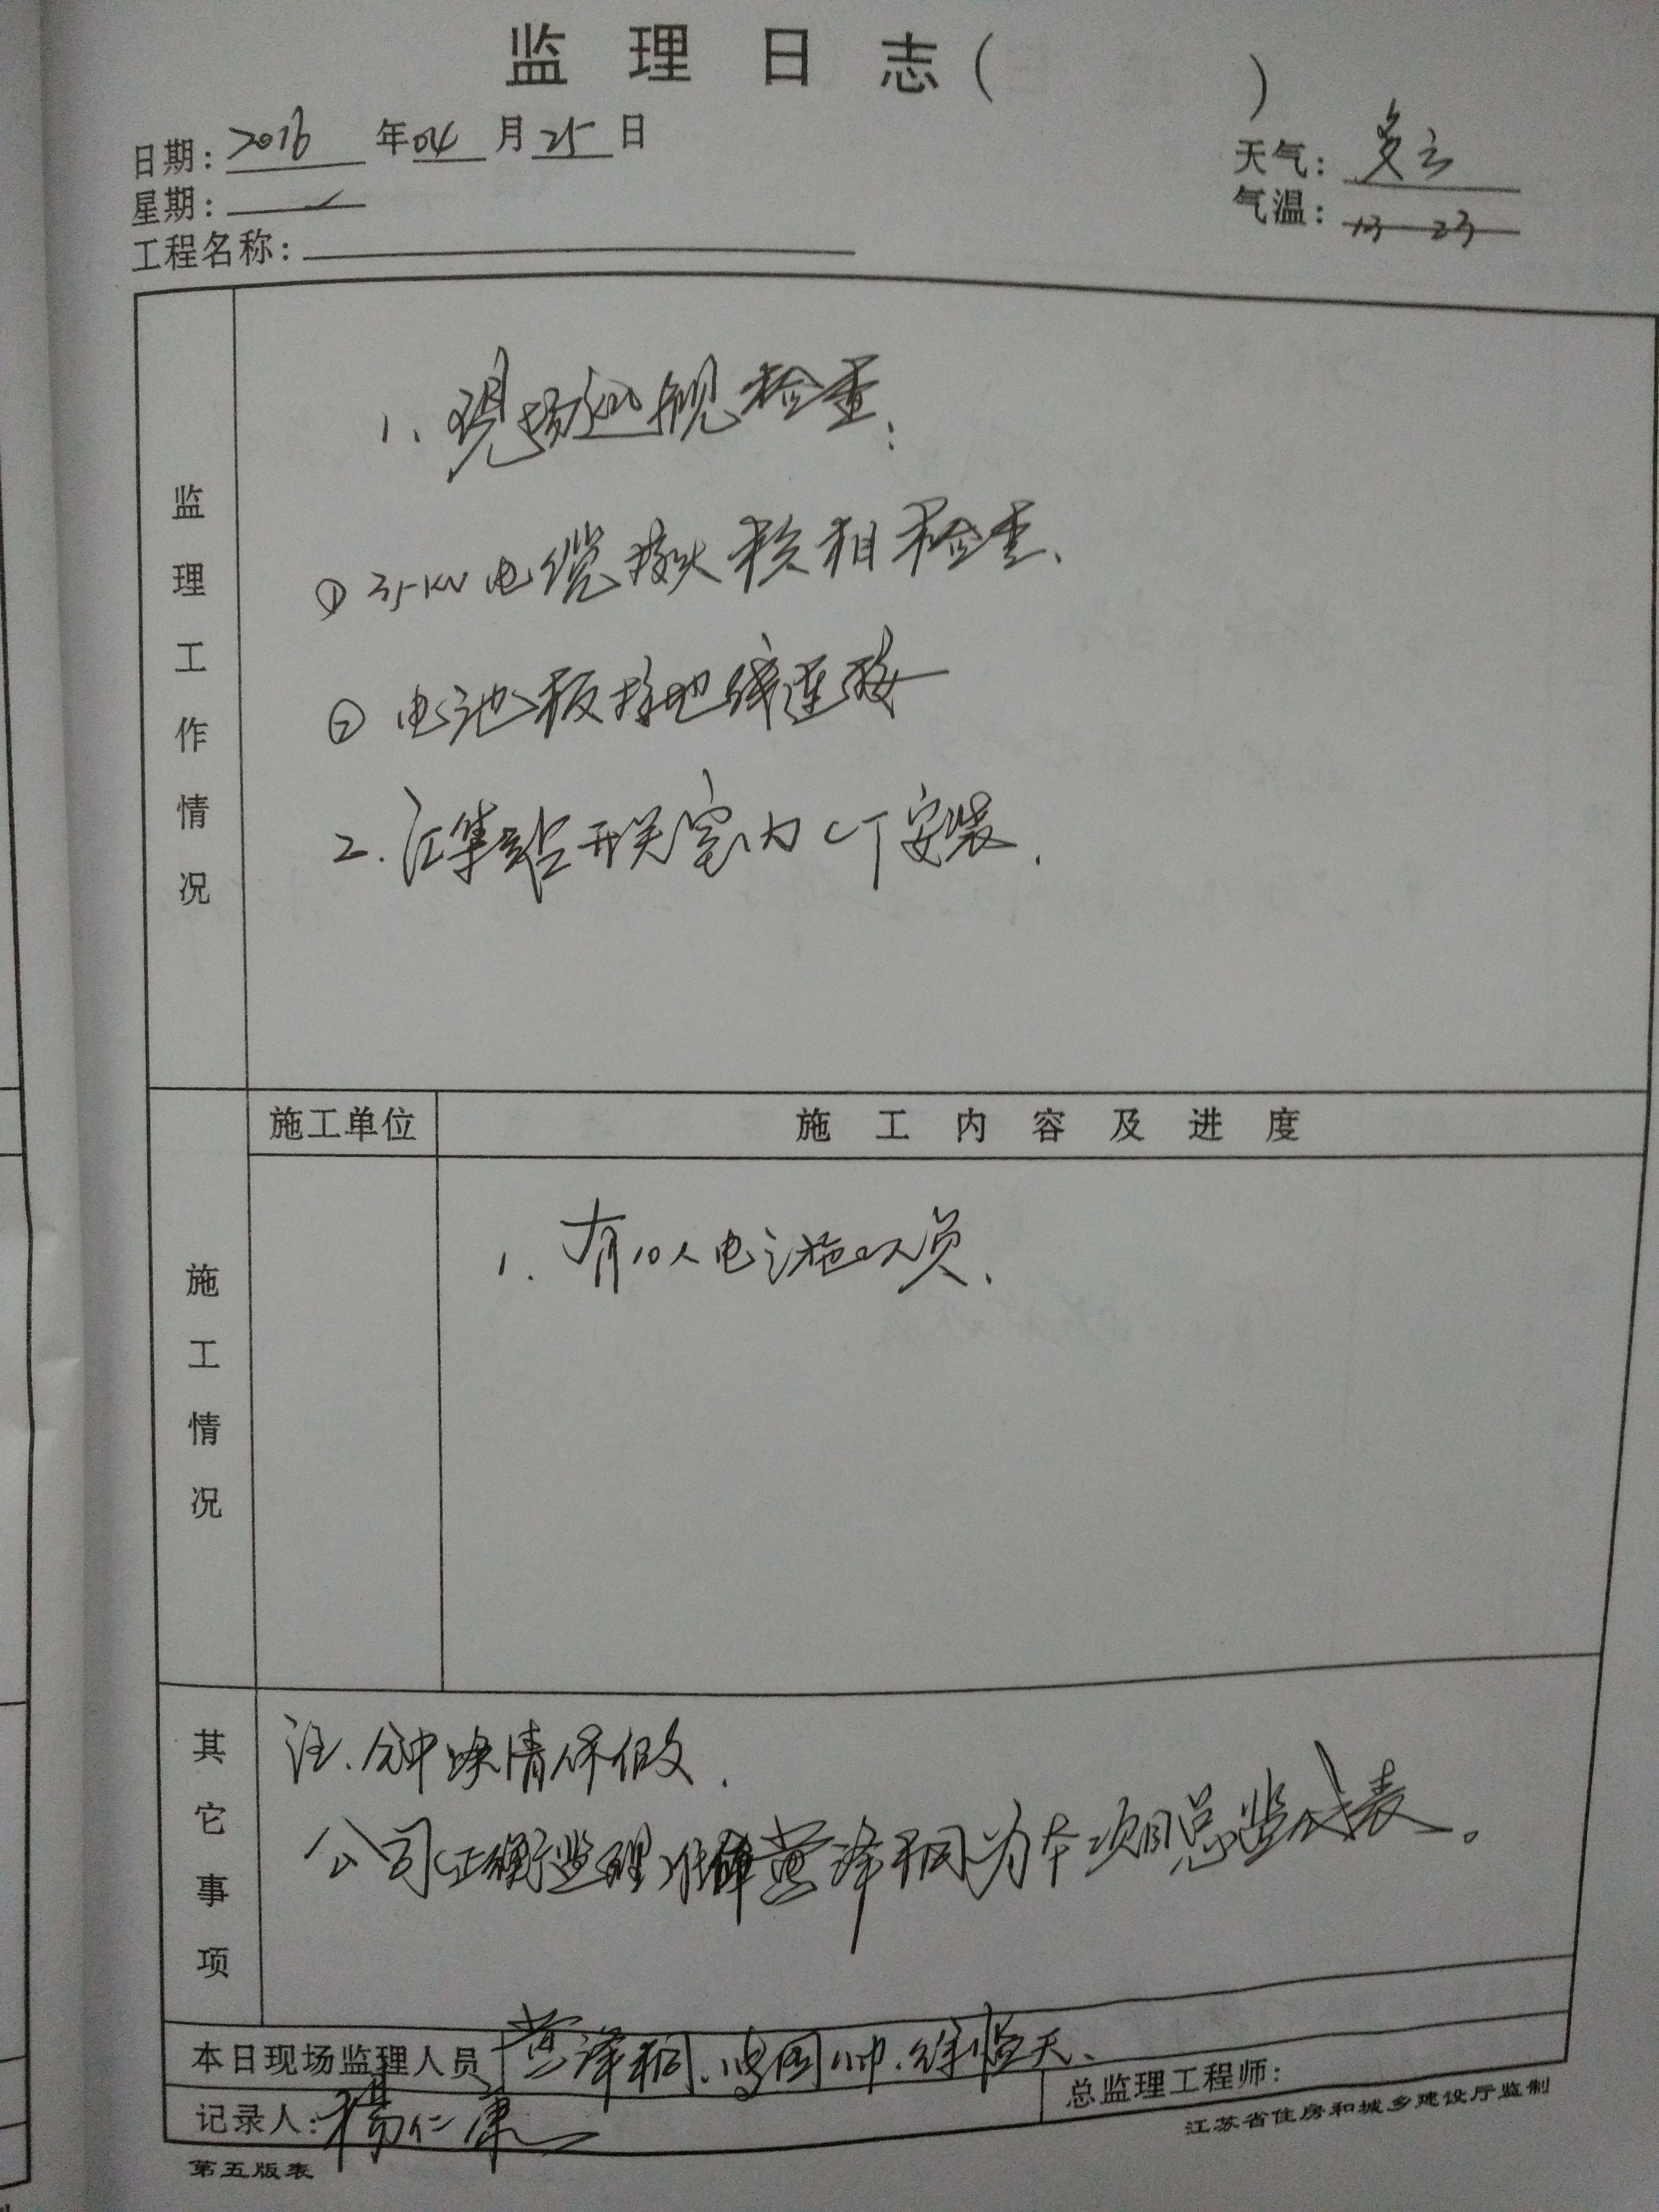 监理日志（ ）
日期：2016年04月25日
天气：多云
星期：一
气温：13 23
工程名称：
监理工作情况
1、现场巡视检查：
① 35KV电缆接头核相检查、
② 电池板接地线连接
2. 汇集站开关室内CT安装．
施工单位 施工内容及进度
施工情况
1. 有10人电池施工人员、
其它事项
注．
公司 监理 黄泽桐为本项目总监代表。
本日现场监理人员 黄泽桐、
总监理工程师：
记录人：杨仁康
江苏省住房和城乡建设厅监制
第五版表